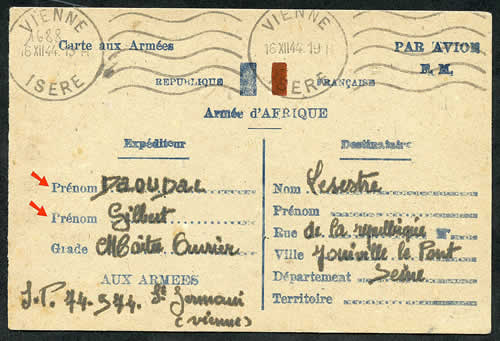 VIENNE
1688
16 XII 44. 19 H
ISERE
VIENNE
16 XII 44. 19 H
ISERE
Carte aux Armées
PAR AVION
F. M.
REPUBLIQUE FRANÇAISE
Armée d'AFRIQUE
Expéditeur
Prénom Daoudal
Prénom Gilbert
Grade Maître Ouvrier
AUX ARMEES
S.P. 74-574. St Germain
(Vienne)
Destinataire
Nom Lesestre
Prénom
Rue de la republique N°
Ville Joinville le Pont
Département Seine
Territoire